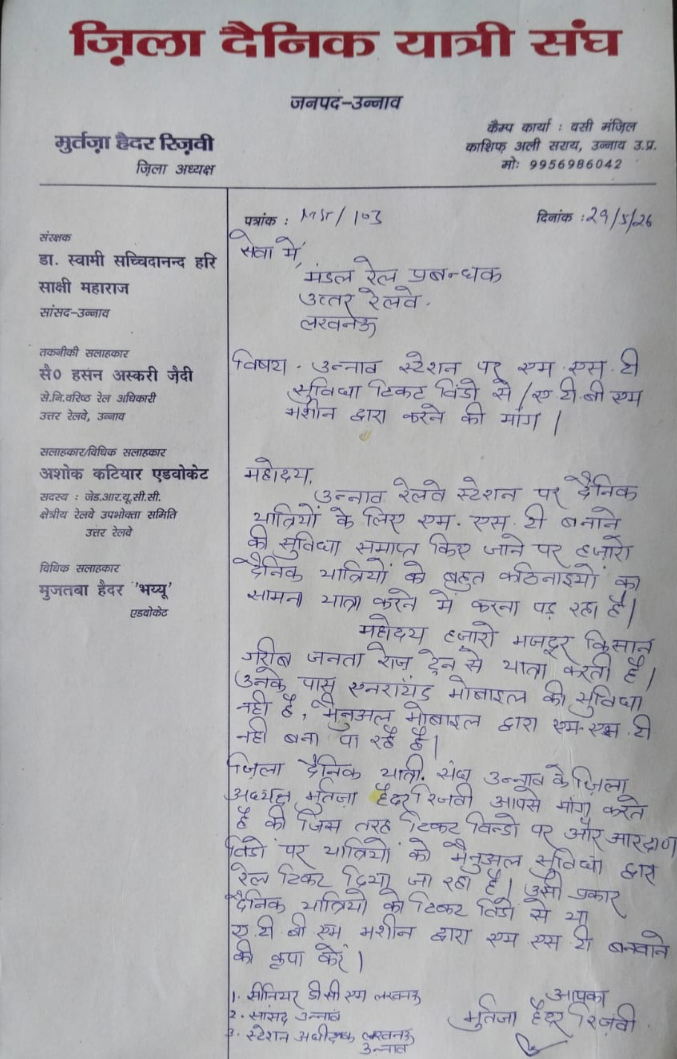 ज़िला दैनिक यात्री संघ
जनपद-उन्नाव
मुर्तज़ा हैदर रिज़वी
ज़िला अध्यक्ष
कैम्प कार्या : वसी मंज़िल
काशिफ़ अली सराय, उन्नाव उ.प्र.
मोः 9956986042
संरक्षक
डा. स्वामी सच्चिदानन्द हरि
साक्षी महाराज
सांसद-उन्नाव
तकनीकी सलाहकार
सै० हसन अस्करी ज़ैदी
से.नि.वरिष्ठ रेल अधिकारी
उत्तर रेलवे, उन्नाव
सलाहकार/विधिक सलाहकार
अशोक कटियार एडवोकेट
सदस्य : जेड.आर.यू.सी.सी.
क्षेत्रीय रेलवे उपभोक्ता समिति
उत्तर रेलवे
विधिक सलाहकार
मुजतबा हैदर 'भय्यू'
एडवोकेट
पत्रांक : /103
दिनांक : 29/5/26
सेवा में,
मंडल रेल प्रबन्धक
उत्तर रेलवे.
लखनऊ
विषय - उन्नाव स्टेशन पर एम.एस.टी
सुविधा टिकट विंडो से / ए.टी.बी एम
मशीन द्वारा करने की मांग |
महोदय,
उन्नाव रेलवे स्टेशन पर दैनिक
यात्रियों के लिए एम.एस.टी बनाने
की सुविधा समाप्त किए जाने पर हज़ारो
दैनिक यात्रियों को बहुत कठिनाइयों का
सामना यात्रा करने में करना पड़ रहा है |
महोदय हज़ारो मजदूर किसान
गरीब जनता रोज ट्रेन से यात्रा करती है |
उनके पास एनरायड मोबाइल की सुविधा
नही है, मैनुअल मोबाइल द्वारा एम.एस.टी
नही बना पा रहे है |
जिला दैनिक यात्री. संघ उन्नाव के ज़िला
अध्यक्ष मुर्तजा हैदर रिजवी आपसे मांग करते
है की जिस तरह टिकट विन्डो पर और आरक्षण
विंडो पर यात्रियों को मैनुअल सुविधा द्वारा
रेल टिकट दिया जा रहा है | उसी प्रकार
दैनिक यात्रियो को टिकट विंडो से या
ए.टी.बी एम मशीन द्वारा एम एस.टी बनवाने
की कृपा करें |
1. सीनियर डी सी एम लखनऊ
2. सांसद उन्नाव
3. स्टेशन अधीक्षक लखनऊ
उन्नाव
आपका
मुर्तजा हैदर रिज़वी